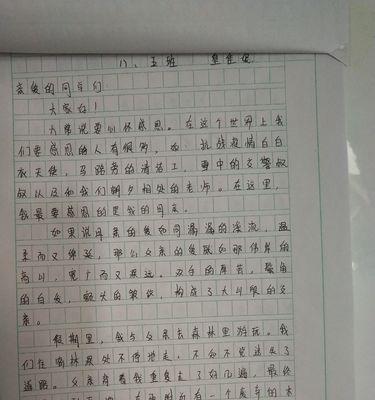 八、五班
亲爱的同学们：
大家好！
大家说要心怀感恩。在这个世界上我
们要感恩的人有很多，如：抗战疫情白
衣天使，马路旁的清洁工，雪中的交警叔
叔以及和我们朝夕相处的老师。在这里，
我最要感恩的是我的母亲。
如果说母亲的爱如同潺潺的溪流，温
柔而又绵延，那么父亲的爱就如那伟岸的
高山，宽广而又深远。双白的
的白发，的，构成了大山般的父
亲。
假期里，我与父亲去森林里游玩。我
们在森林深处不停地走，不知不觉迷失了
道路。父亲背着我重复走了好几遍，最终
有一个废弃的木